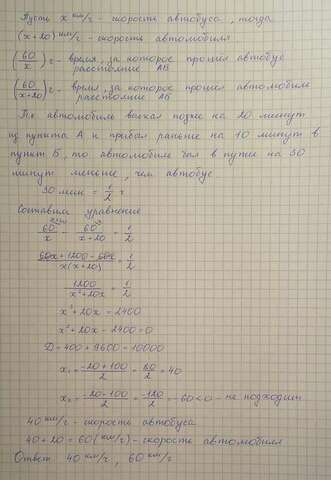 Пусть x км/г - скорость автобуса, тогда
(x+20) км/г - скорость автомобиля
(60/x) г - время, за которое прошел автобус
расстояние АВ
(60/x+20) г - время, за которое прошел автомобиль
расстояние АБ
Т.к автомобиль выехал позже на 20 минут
из пункта А и прибал раньше на 10 минут в
пункт Б, то автомобиль был в пути на 30
минут меньше, чем автобус
30 мин = 1/2 г
Составим уравнение
60/x - 60/x+20 = 1/2
60x+1200-60x/x(x+20) = 1/2
1200/x²+20x = 1/2
x²+20x=2400
x²+20x-2400=0
D=400+9600=10000
x₁= -20+100/2 = 80/2 = 40
x₂= -20-100/2 = -120/2 = -60<0 - не подходит
40 км/г - скорость автобуса
40+20=60(км/г) - скорость автомобиля
Ответ 40 км/г, 60 км/г